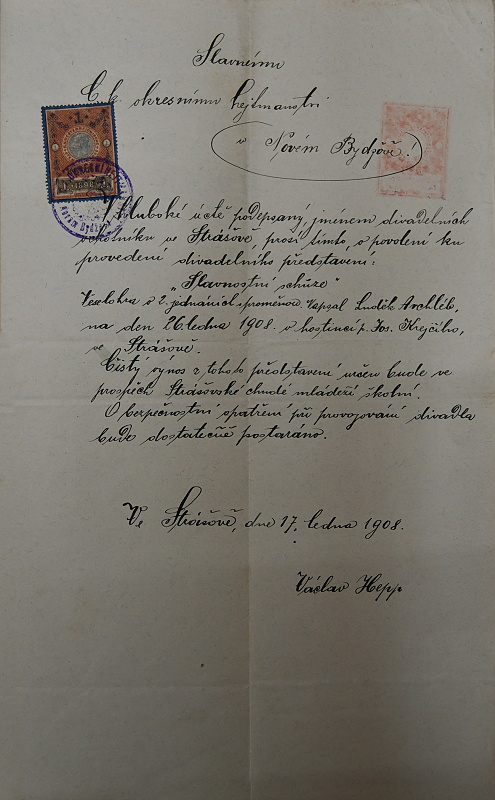 Slavnému
C. k. okresnímu hejtmanství
v Novém Bydžově!
1
1898
V hluboké úctě podepsaný, jménem divadelních
ochotníků ve Strášově, prosí tímto, o povolení ku
provedení divadelního představení:
„Slavnostní schůze"
Veselohra o 2 jednáních s proměnou. Napsal Luděk Archleb,
na den 26. ledna 1908. v hostinci p. Jos. Krejčího,
ve Strášově.
Čistý výnos z tohoto představení určen bude ve
prospěch Strášovské chudé mládeži školní.
O bezpečnostní opatření při provozování divadla
bude dostatečně postaráno.
Ve Strášově, dne 17. ledna 1908.
Václav Hepp